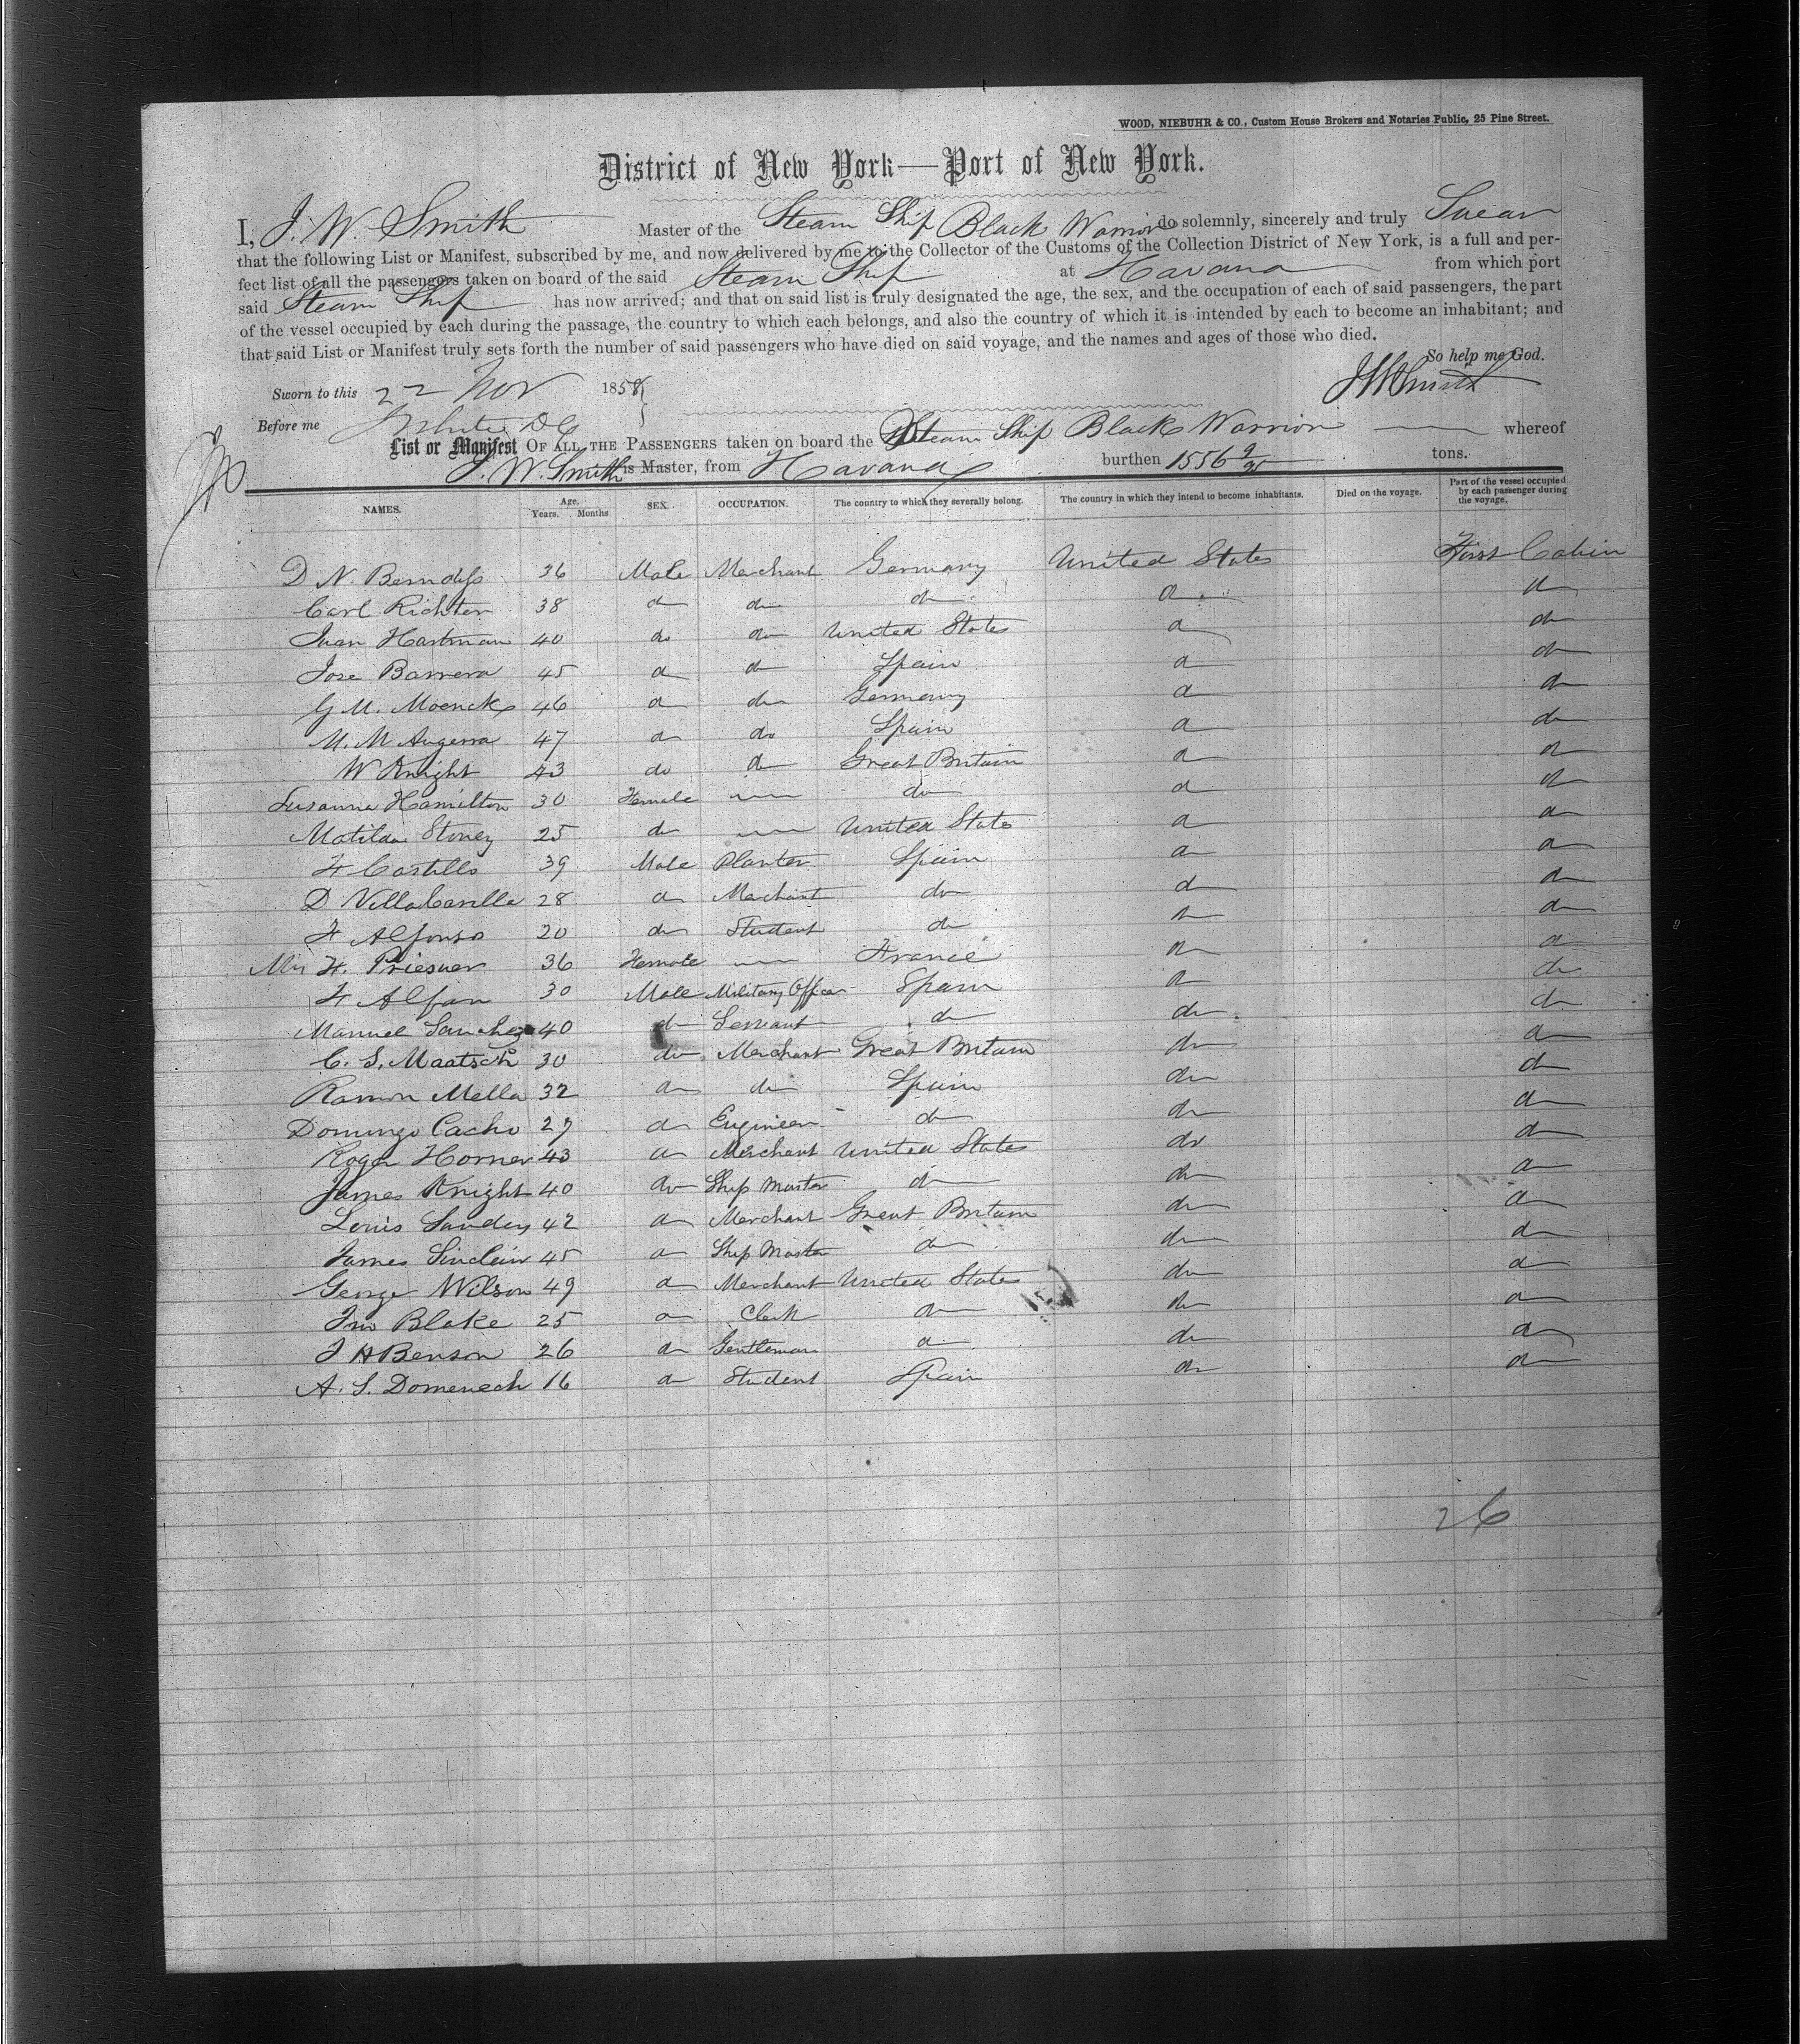 WOOD, NIEBUHR & CO., Custom House Brokers and Notaries Public, 25 Pine Street.
District of New York—Port of New York.
I, J. W. Smith Master of the Steam Ship Black Warrior do solemnly, sincerely and truly Swear
that the following List or Manifest, subscribed by me, and now delivered by me to the Collector of the Customs of the Collection District of New York, is a full and per-
fect list of all the passengers taken on board of the said Steam Ship at Havana from which port
said Steam Ship has now arrived; and that on said list is truly designated the age, the sex, and the occupation of each of said passengers, the part
of the vessel occupied by each during the passage, the country to which each belongs, and also the country of which it is intended by each to become an inhabitant; and
that said List or Manifest truly sets forth the number of said passengers who have died on said voyage, and the names and ages of those who died.
So help me God.
Sworn to this 22 Nov 1858 J W Smith
Before me
List or Manifest OF ALL THE PASSENGERS taken on board the Steam Ship Black Warrior whereof
J. W. Smith is Master, from Havana burthen 1556 9/95 tons.
NAMES. Age. Years. Months SEX. OCCUPATION. The country to which they severally belong. The country in which they intend to become inhabitants. Died on the voyage. Part of the vessel occupied by each passenger during the voyage.
D N. 36 Male Merchant Germany United States First Cabin
Carl Richter 38 do do do do do
Juan Hartman 40 do do United States do do
Jose Barrera 45 do do Spain do do
G M. Moenck 46 do do Germany do do
M. M 47 do do Spain do do
W Knight 43 do do Great Britain do do
Susanna Hamilton 30 Female — do do do
Matilda Stoney 25 do — United States do do
F Castillo 39 Male Planter Spain do do
D 28 do Merchant do do do
F Alfonso 20 do Student do do do
F. Priesner 36 Female — France do do
F Alfan 30 Male Military Officer Spain do do
Manuel Sanchez 40 do Servant do do do
C. S. Maatsch 30 do Merchant Great Britain do do
Ramon Mella 32 do do Spain do do
Domingo Cacho 27 do Engineer do do do
Roger Horner 43 do Merchant United States do do
James Knight 40 do Ship Master do do do
Louis 42 do Merchant Great Britain do do
James Sinclair 45 do Ship Master do do do
George Wilson 49 do Merchant United States do do
Jno Blake 25 do Clerk do do do
J H Benson 26 do Gentleman do do do
A. S. Domenech 16 do Student Spain do do
26